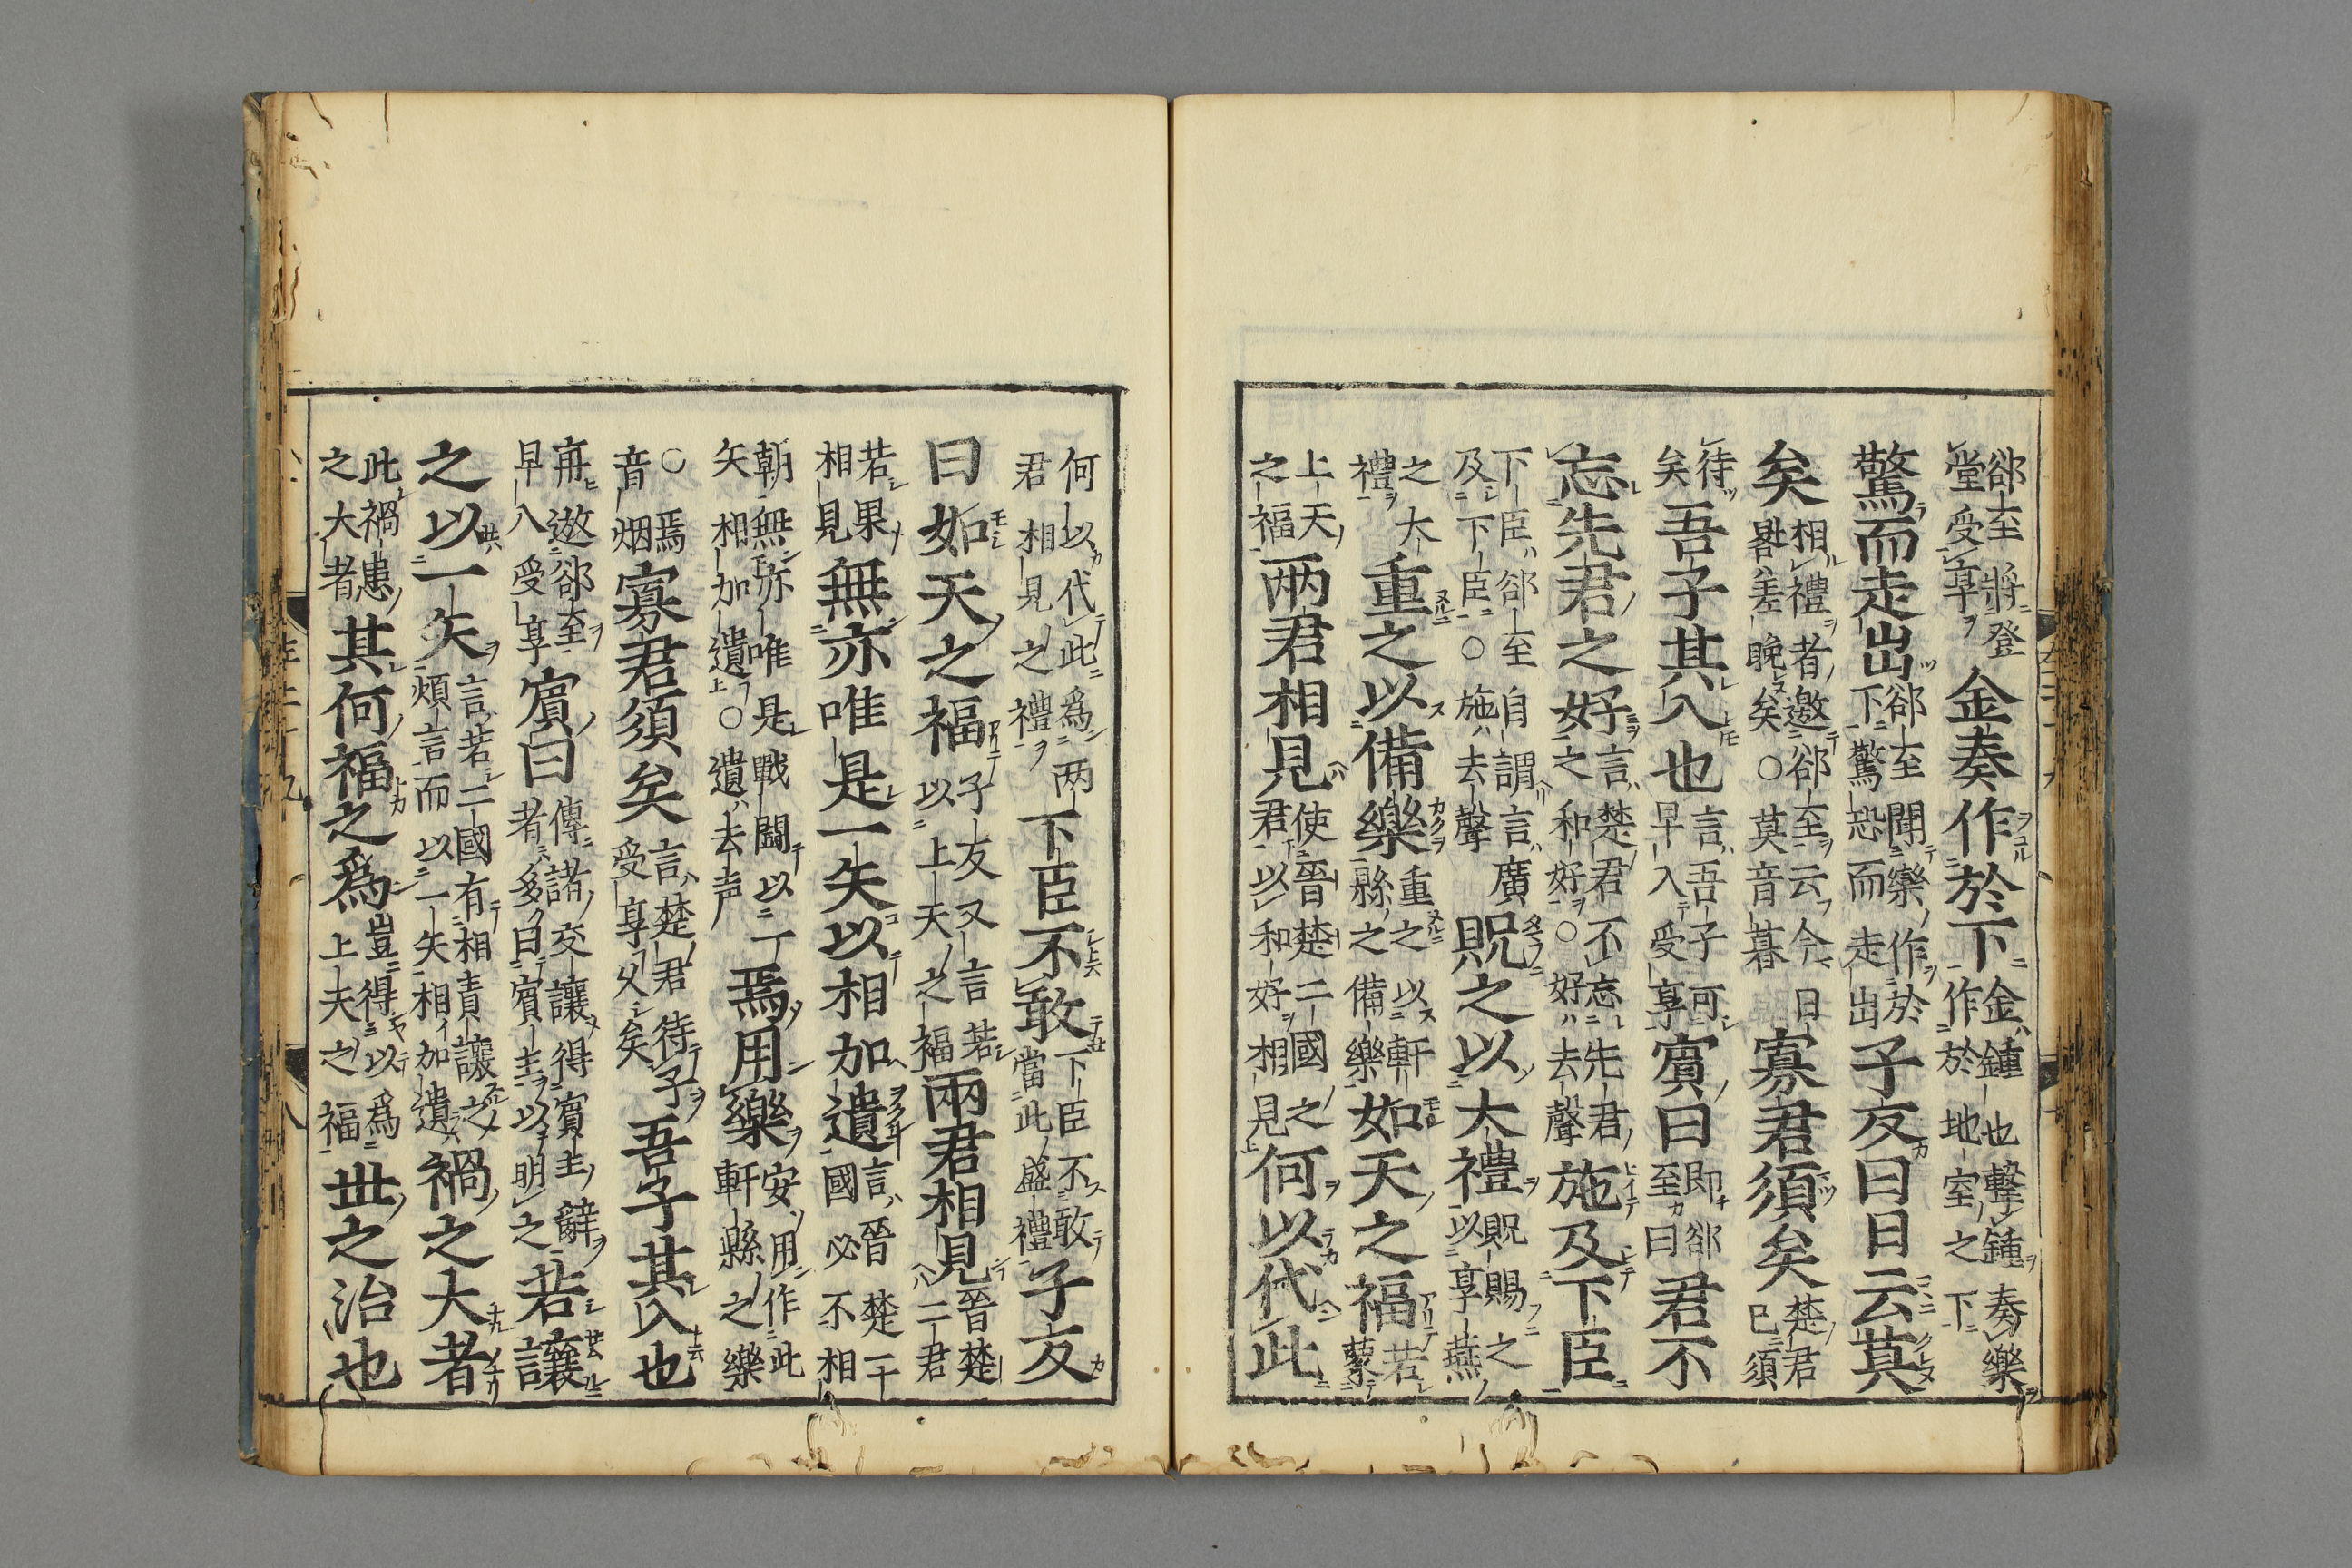 郤至將登堂受享金奏作於下金鍾也擊鍾奏樂作於地室之下
驚而走出郤至聞樂作於下驚恐而走出子反曰日云莫
矣相禮者邀郤至云今日晷差晚矣○莫音暮寡君須矣楚君已須
待矣吾子其入也言吾子可早入受享賓曰即郤至曰君不
忘先君之好言楚君不忘先君之和好○好去聲施及下臣
下臣郤至自謂言廣及下臣○施去聲貺之以大禮貺賜之以享燕
之大禮重之以備樂重之以軒縣之備樂如天之福若蒙
上天之福两君相見使晉楚二國之君以和好相見何以代此
何以代此爲两君相見之禮下臣不敢下臣不敢當此盛禮子反
曰如天之福子反又言若以上天之福兩君相見晉楚二君
若果相見無亦唯是一矢以相加遺言晉楚二國必不相
朝無亦唯是戰鬪以一矢相加遺○遺去声焉用樂安用作此軒縣之樂
○焉音烟寡君須矣言楚君待子受享久矣吾子其入也
再邀郤至早入受享賓曰傳諸交讓得賓主辭者多曰賓主以明之若讓
之以一矢言若二國有相責讓之煩言而以一矢相加遺禍之大者
此禍患之大者其何福之爲豈得以爲上天之福世之治也